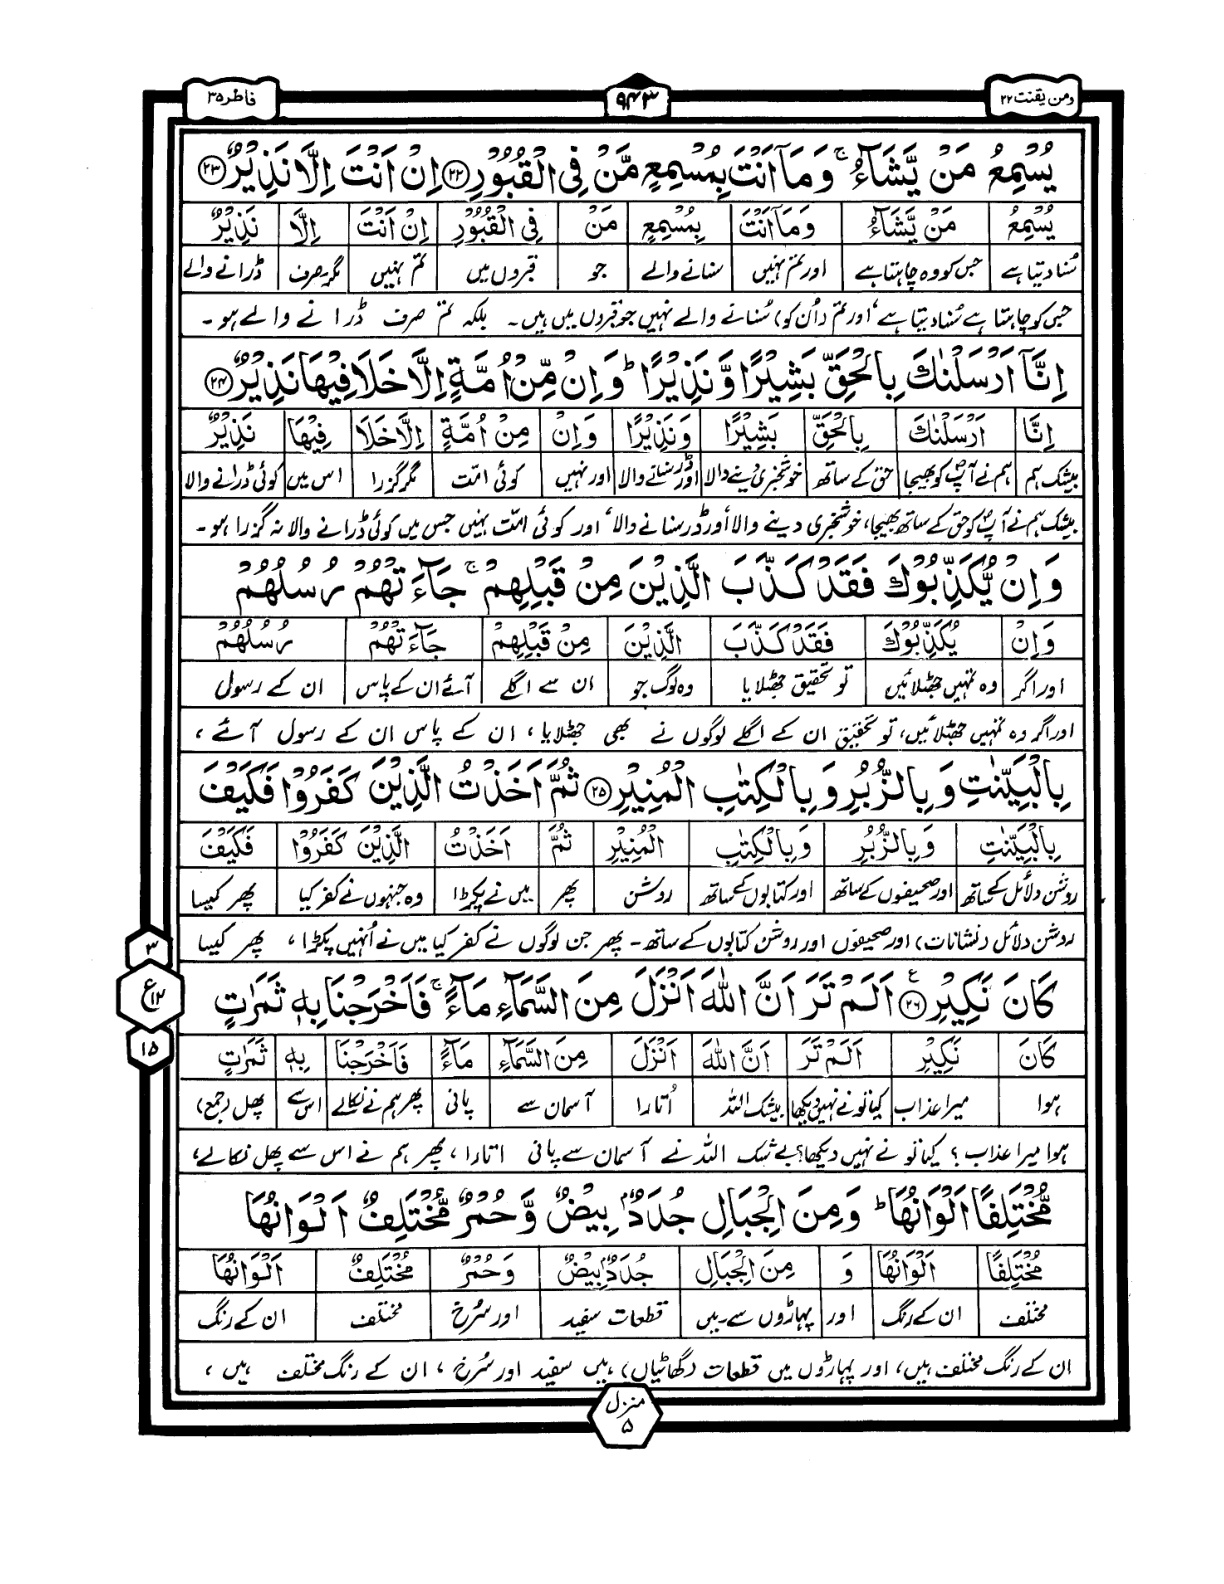 ومن يقنت ۲۲
۹۴۳
فاطر ۳۵
يُسْمِعُ مَنْ يَّشَآءُ ۚ وَمَآ اَنْتَ بِمُسْمِعٍ مَّنْ فِى الْقُبُوْرِ ﴿۲۲﴾ اِنْ اَنْتَ اِلَّا نَذِيْرٌ ﴿۲۳﴾
يُسْمِعُ مَنْ يَّشَآءُ وَمَآ اَنْتَ بِمُسْمِعٍ مَنْ فِى الْقُبُوْرِ اِنْ اَنْتَ اِلَّا نَذِيْرٌ
سُنا دیتا ہے جس کو وہ چاہتا ہے اور تم نہیں سنانے والے جو قبروں میں تم نہیں مگر صرف ڈرانے والے
جس کو چاہتا ہے سُنا دیتا ہے، اور تم (اُن کو) سُنانے والے نہیں جو قبروں میں ہیں۔ بلکہ تم صرف ڈرانے والے ہو۔
اِنَّآ اَرْسَلْنٰكَ بِالْحَقِّ بَشِيْرًا وَّنَذِيْرًا ؕ وَاِنْ مِّنْ اُمَّةٍ اِلَّا خَلَا فِيْهَا نَذِيْرٌ ﴿۲۴﴾
اِنَّا اَرْسَلْنٰكَ بِالْحَقِّ بَشِيْرًا وَنَذِيْرًا وَاِنْ مِنْ اُمَّةٍ اِلَّا خَلَا فِيْهَا نَذِيْرٌ
بیشک ہم ہم نے آپؐ کو بھیجا حق کے ساتھ خوشخبری دینے والا اور ڈر سنانے والا اور نہیں کوئی امّت مگر گزرا اس میں کوئی ڈرانے والا
بیشک ہم نے آپؐ کو حق کے ساتھ بھیجا، خوشخبری دینے والا اور ڈر سنانے والا، اور کوئی امّت نہیں جس میں کوئی ڈرانے والا نہ گزرا ہو۔
وَاِنْ يُّكَذِّبُوْكَ فَقَدْ كَذَّبَ الَّذِيْنَ مِنْ قَبْلِهِمْ ۚ جَآءَتْهُمْ رُسُلُهُمْ
وَاِنْ يُكَذِّبُوْكَ فَقَدْ كَذَّبَ الَّذِيْنَ مِنْ قَبْلِهِمْ جَآءَتْهُمْ رُسُلُهُمْ
اور اگر وہ تمہیں جھٹلائیں تو تحقیق جھٹلایا وہ لوگ جو ان سے اگلے آئے ان کے پاس ان کے رسول
اور اگر وہ تمہیں جھٹلائیں، تو تحقیق ان کے اگلے لوگوں نے بھی جھٹلایا، ان کے پاس ان کے رسول آئے،
بِالْبَيِّنٰتِ وَبِالزُّبُرِ وَبِالْكِتٰبِ الْمُنِيْرِ ﴿۲۵﴾ ثُمَّ اَخَذْتُ الَّذِيْنَ كَفَرُوْا فَكَيْفَ
بِالْبَيِّنٰتِ وَبِالزُّبُرِ وَبِالْكِتٰبِ الْمُنِيْرِ ثُمَّ اَخَذْتُ الَّذِيْنَ كَفَرُوْا فَكَيْفَ
روشن دلائل کے ساتھ اور صحیفوں کے ساتھ اور کتابوں کے ساتھ روشن پھر میں نے پکڑا وہ جنہوں نے کفر کیا پھر کیسا
روشن دلائل (نشانات) اور صحیفوں اور روشن کتابوں کے ساتھ۔ پھر جن لوگوں نے کفر کیا میں نے اُنہیں پکڑا، پھر کیسا
۳
ع ۱۲
۱۵
كَانَ نَكِيْرِ ﴿۲۶﴾ ع اَلَمْ تَرَ اَنَّ اللّٰهَ اَنْزَلَ مِنَ السَّمَآءِ مَآءً ۚ فَاَخْرَجْنَا بِهٖ ثَمَرٰتٍ
كَانَ نَكِيْرِ اَلَمْ تَرَ اَنَّ اللّٰهَ اَنْزَلَ مِنَ السَّمَآءِ مَآءً فَاَخْرَجْنَا بِهٖ ثَمَرٰتٍ
ہوا میرا عذاب کیا تو نے نہیں دیکھا بیشک اللہ اُتارا آسمان سے پانی پھر ہم نے نکالے اس سے پھل (جمع)
ہوا میرا عذاب؟ کیا تو نے نہیں دیکھا؟ بے شک اللہ نے آسمان سے پانی اتارا، پھر ہم نے اس سے پھل نکالے،
مُّخْتَلِفًا اَلْوَانُهَا ؕ وَمِنَ الْجِبَالِ جُدَدٌۢ بِيْضٌ وَّحُمْرٌ مُّخْتَلِفٌ اَلْوَانُهَا
مُخْتَلِفًا اَلْوَانُهَا وَ مِنَ الْجِبَالِ جُدَدٌۢ بِيْضٌ وَحُمْرٌ مُخْتَلِفٌ اَلْوَانُهَا
مختلف ان کے رنگ اور پہاڑوں سے۔ میں قطعات سفید اور سُرخ مختلف ان کے رنگ
ان کے رنگ مختلف ہیں، اور پہاڑوں میں قطعات (گھاٹیاں) ہیں سفید اور سُرخ، ان کے رنگ مختلف ہیں،
منزل
۵